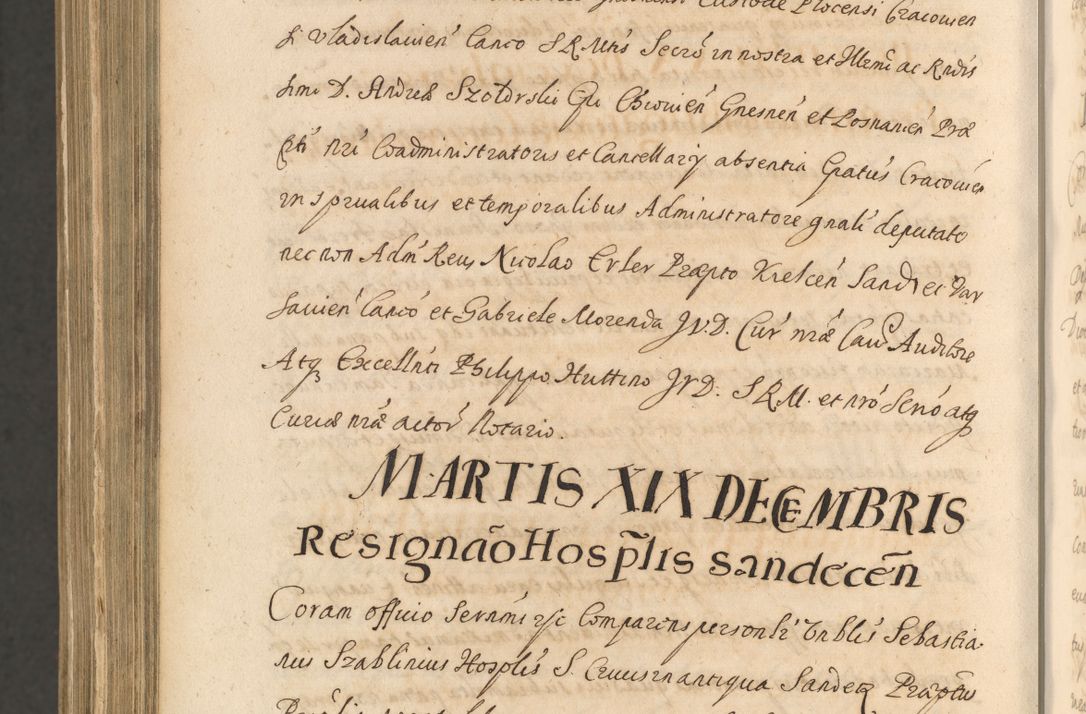 Custode Plocensi Cracovien
et Vladislavien̄ Canco S R Mtis Secrō in nostra et Illmi ac Rndis
simi D. Andreæ Szołdrski Epi Chiovien̄ Gnesnen̄ et Posnanien̄ Præ
pti nri Coadministratoris et Cancellarÿ absentia Epatus Cracovien
in sprualibus et temporalibus Administratore gnali deputato
nec non Adm̄ Reus Nicolao Erler Præpto Kielcen̄ Sand et Var
savien̄ Cancō et Gabriele Morenda JVD. Cur̄ nræ Caus̄ Auditore
Atq Excellnti Philippo Huttino JVD. S R M. et nrō Serīo atq
Curiæ nræ actor̄ Notario.
MARTIS XIX DECEMBRIS
Resignāo Hosp̄lis Sandecēn
Coram officio Serenmi &c Comparens personlr̄ Vnblis̄ Sebastia-
nus Szablinius Hosplis̄ S. Crucis in antiqua Sandecz Præptus